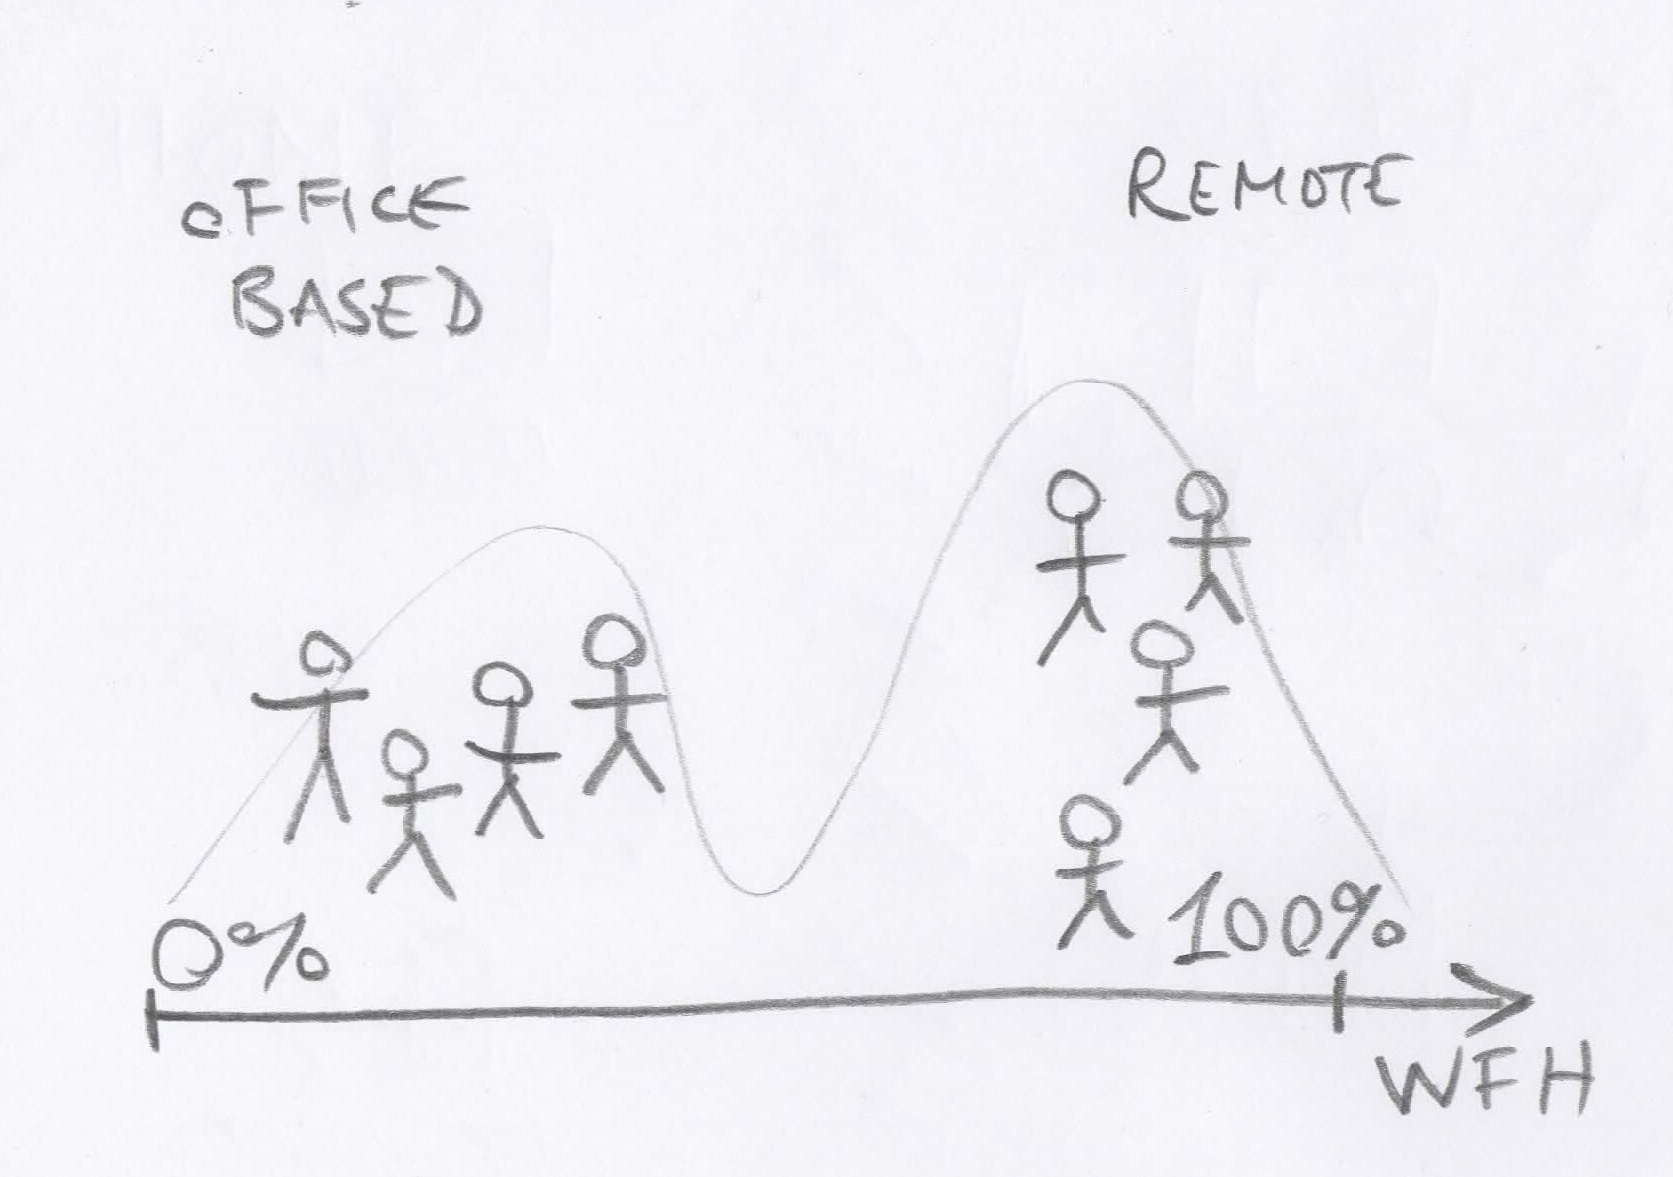 OFFICE
BASED
REMOTE
0%
100%
WFH